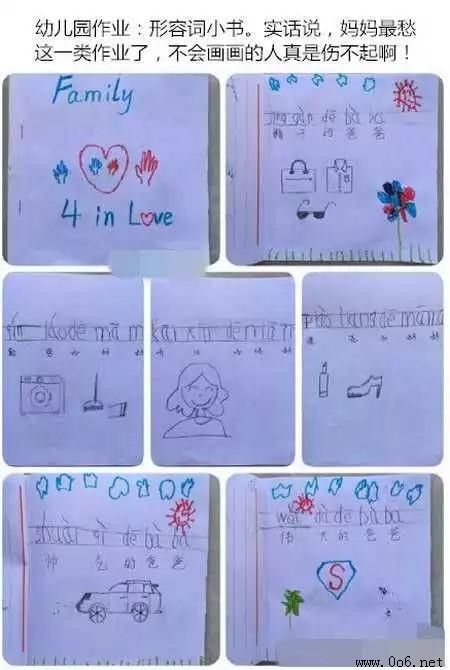 幼儿园作业：形容词小书。实话说，妈妈最愁
这一类作业了，不会画画的人真是伤不起啊！
Family
4 in Love
gàn dē bà
的 爸 爸
láo dē mā m
kāi xīn dē
liang dē mā ma
shuài qì dē bà ba
帅 气 的 爸 爸
wěi dà dē bà ba
伟 大 的 爸 爸
S
www.0o6.net